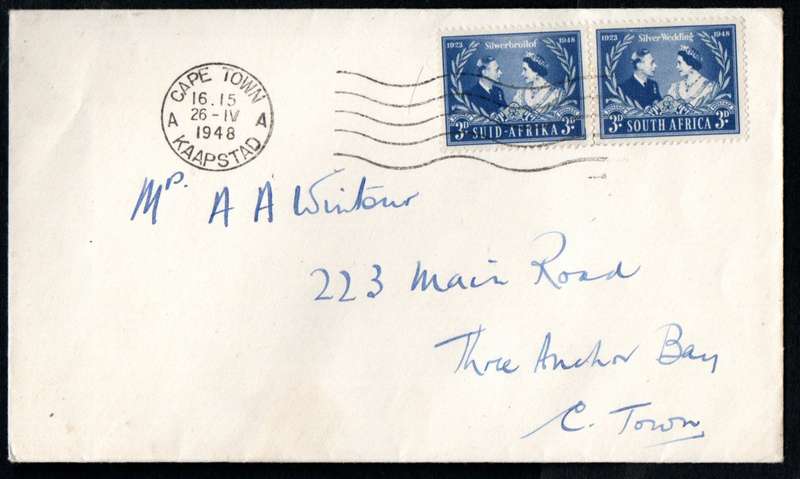 CAPE TOWN
16.15
26-IV
1948
A A
KAAPSTAD
1923 Silwerbruilof 1948
3D SUID-AFRIKA 3D
1923 Silver Wedding 1948
3D SOUTH AFRICA 3D
Mr. A A Wintour
223 Main Road
Three Anchor Bay
C. Town